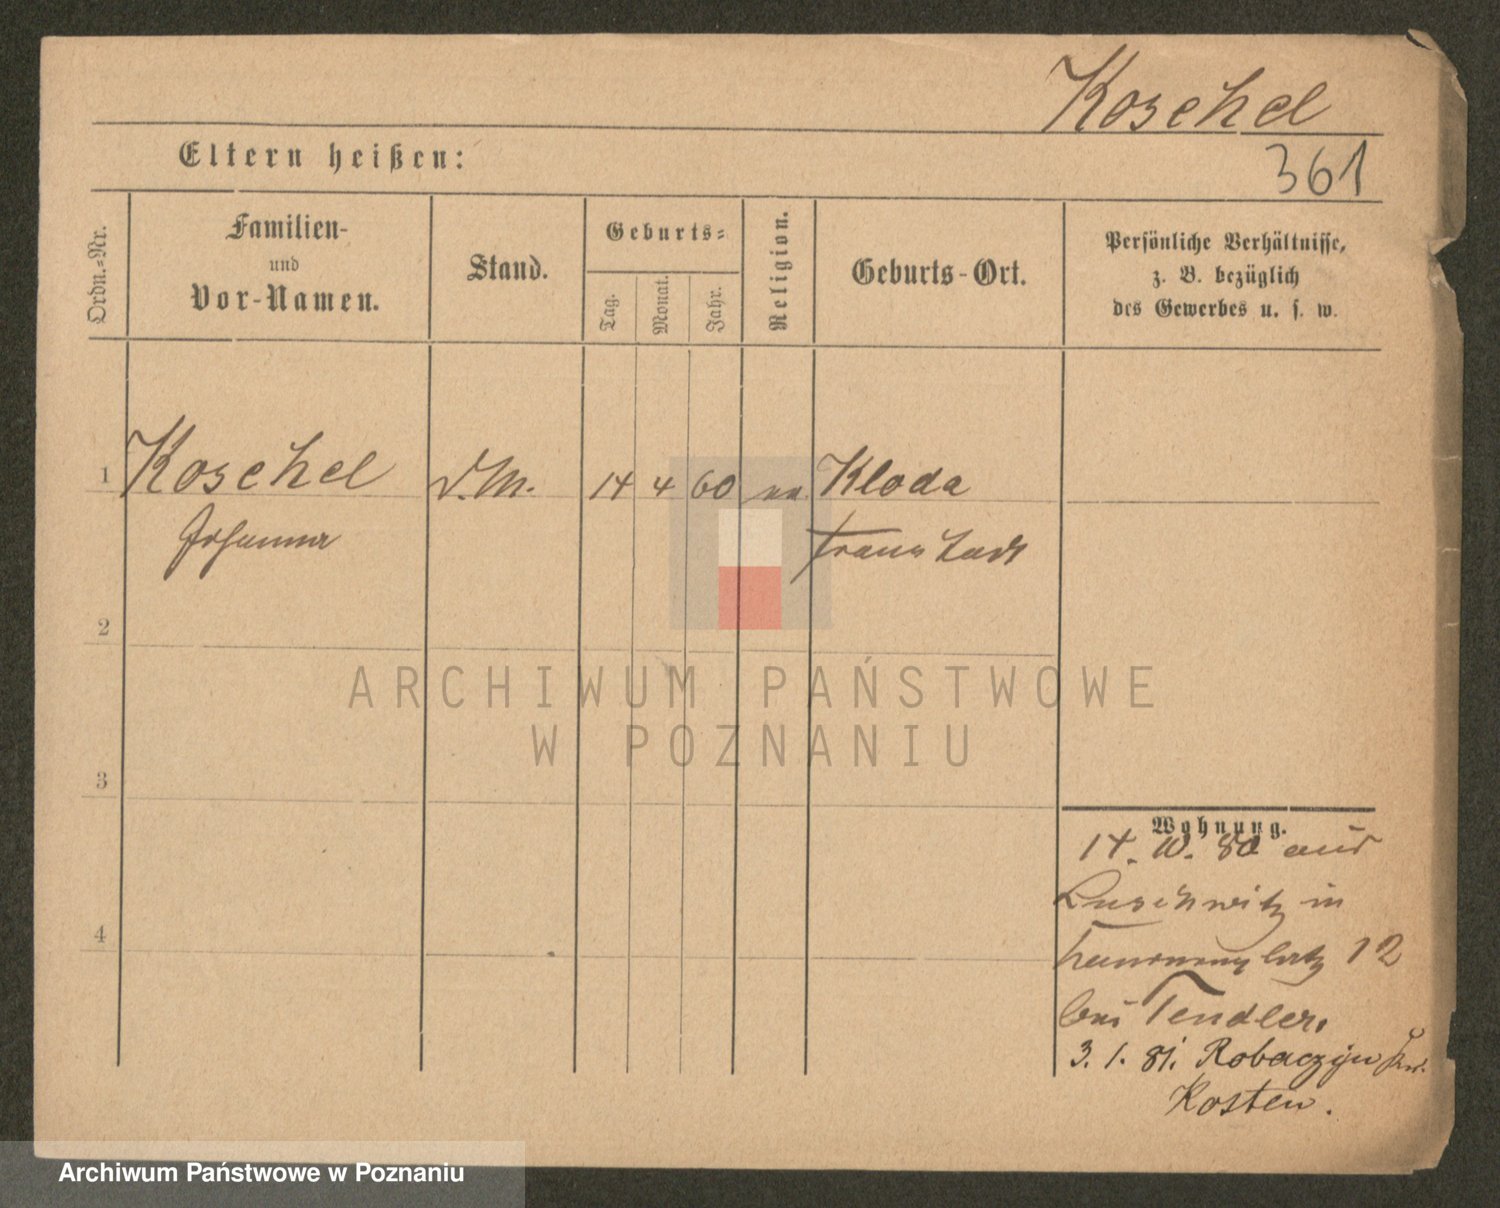 Koschel
Eltern heißen:
361
Ordn.=Nr.
Familien-
und
Vor-Namen.
Stand.
Geburts=
Tag.
Monat.
Jahr.
Religion.
Geburts-Ort.
Persönliche Verhältnisse,
z. B. bezüglich
des Gewerbes u. s. w.
1
Koschel
d. M.
14
4
60
Kloda
Johanna
Fraustadt
2
ARCHIWUM PAŃSTWOWE
W POZNANIU
3
Wohnung.
14. 10. 80 aus
Luschwitz in
12
4
bei Tendler.
3. 1. 81. Robaczyn
Kosten.
Archiwum Państwowe w Poznaniu